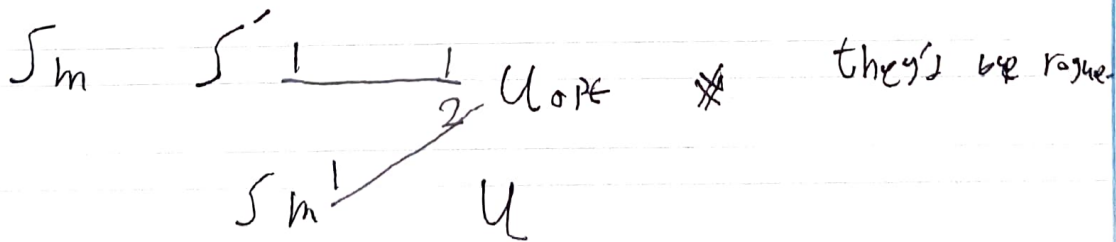 Sm S' 1 1 U OPT they'd be rogue.
2
Sm 1 U